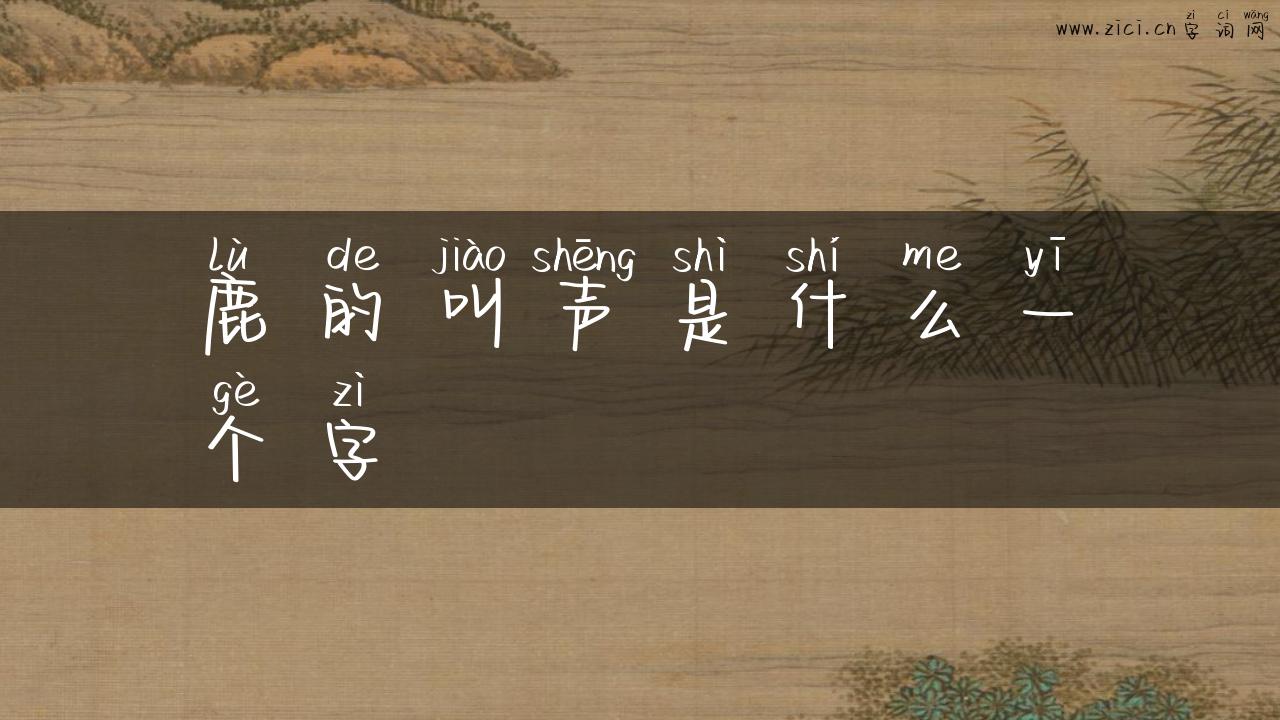 www.zici.cn
zì cí wǎng
字词网
lù de jiào shēng shì shí me yī
鹿的叫声是什么一
gè zì
个字